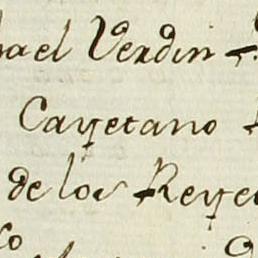 ael Verdin
Cayetano
de los Reye
co